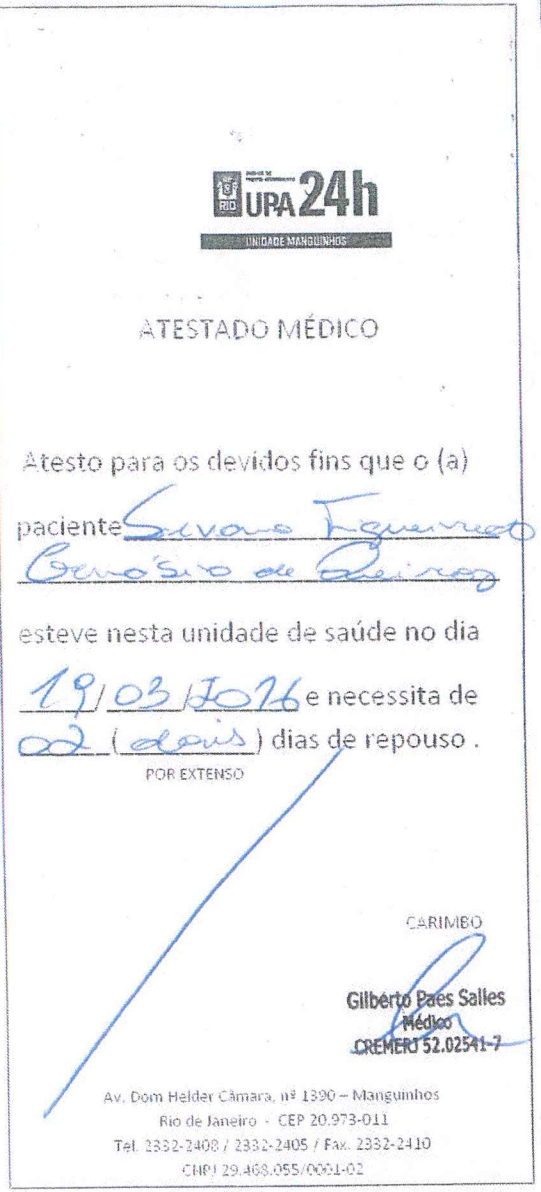 RIO UPA 24h
UNIDADE MANGUINHOS
ATESTADO MÉDICO
Atesto para os devidos fins que o (a)
paciente Silvano Figueiredo
de Queiroz
esteve nesta unidade de saúde no dia
19/03/2026 e necessita de
02 (dois) dias de repouso .
POR EXTENSO
CARIMBO
Gilberto Paes Salles
Médico
CREMERJ 52.02541-7
Av. Dom Helder Câmara, nº 1390 – Manguinhos
Rio de Janeiro - CEP 20.973-011
Tel. 2332-2408 / 2332-2405 / Fax. 2332-2410
CNPJ 29.468.055/0001-02